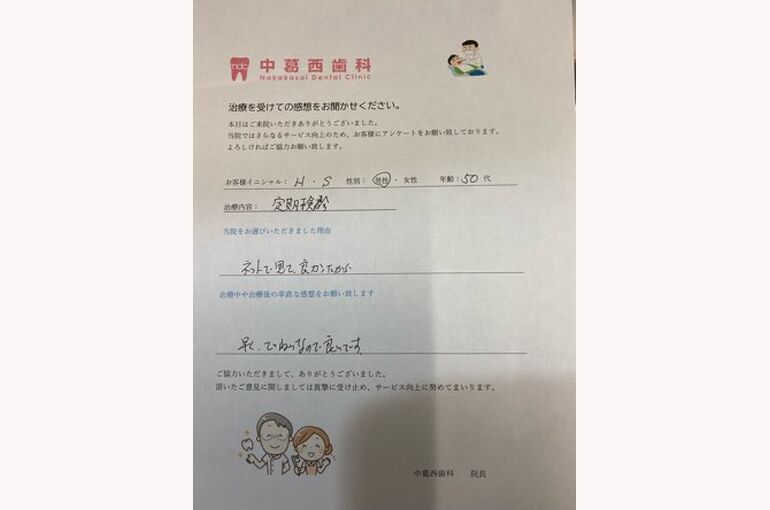 ndc
中葛西歯科
Nakakasai Dental Clinic
治療を受けての感想をお聞かせください。
本日はご来院いただきありがとうございました。
当院ではさらなるサービス向上のため、お客様にアンケートをお願い致しております。
よろしければご協力お願い致します。
お客様イニシャル： H ・ S 性別：男性・女性 年齢：50 代
治療内容： 定期検診
当院をお選びいただきました理由
ネットで見て、良かったから
治療中や治療後の率直な感想をお願い致します
早く、ていねいなので良いです。
ご協力いただきまして、ありがとうございました。
頂いたご意見に関しましては真摯に受け止め、サービス向上に努めてまいります。
中葛西歯科 院長